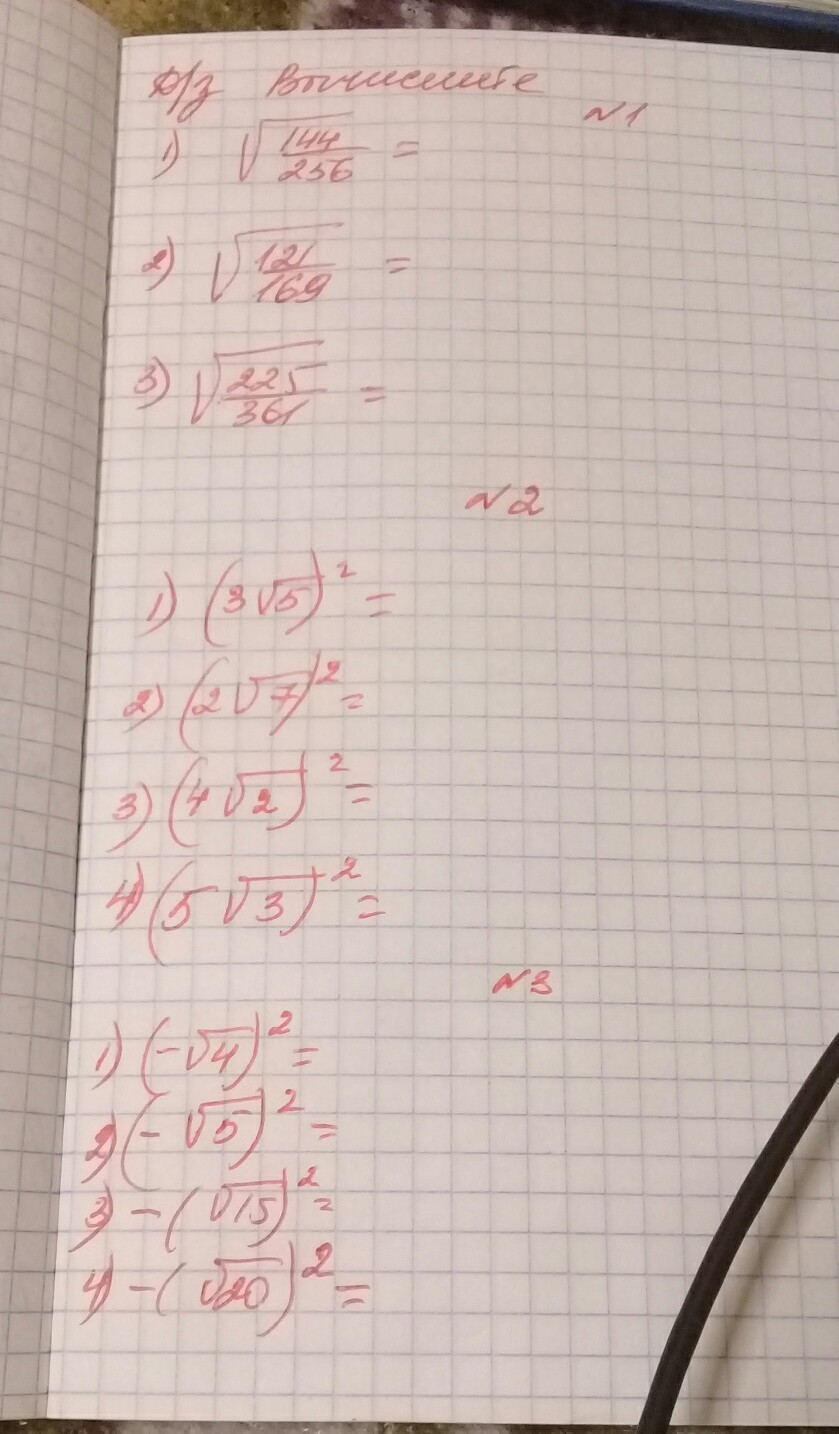 Д/з Вычислите
№1
1) √(144/256) =
2) √(121/169) =
3) √(225/361) =
№2
1) (3√5)² =
2) (2√7)² =
3) (4√2)² =
4) (5√3)² =
№3
1) (-√4)² =
2) (-√5)² =
3) -(√15)² =
4) -(√20)² =